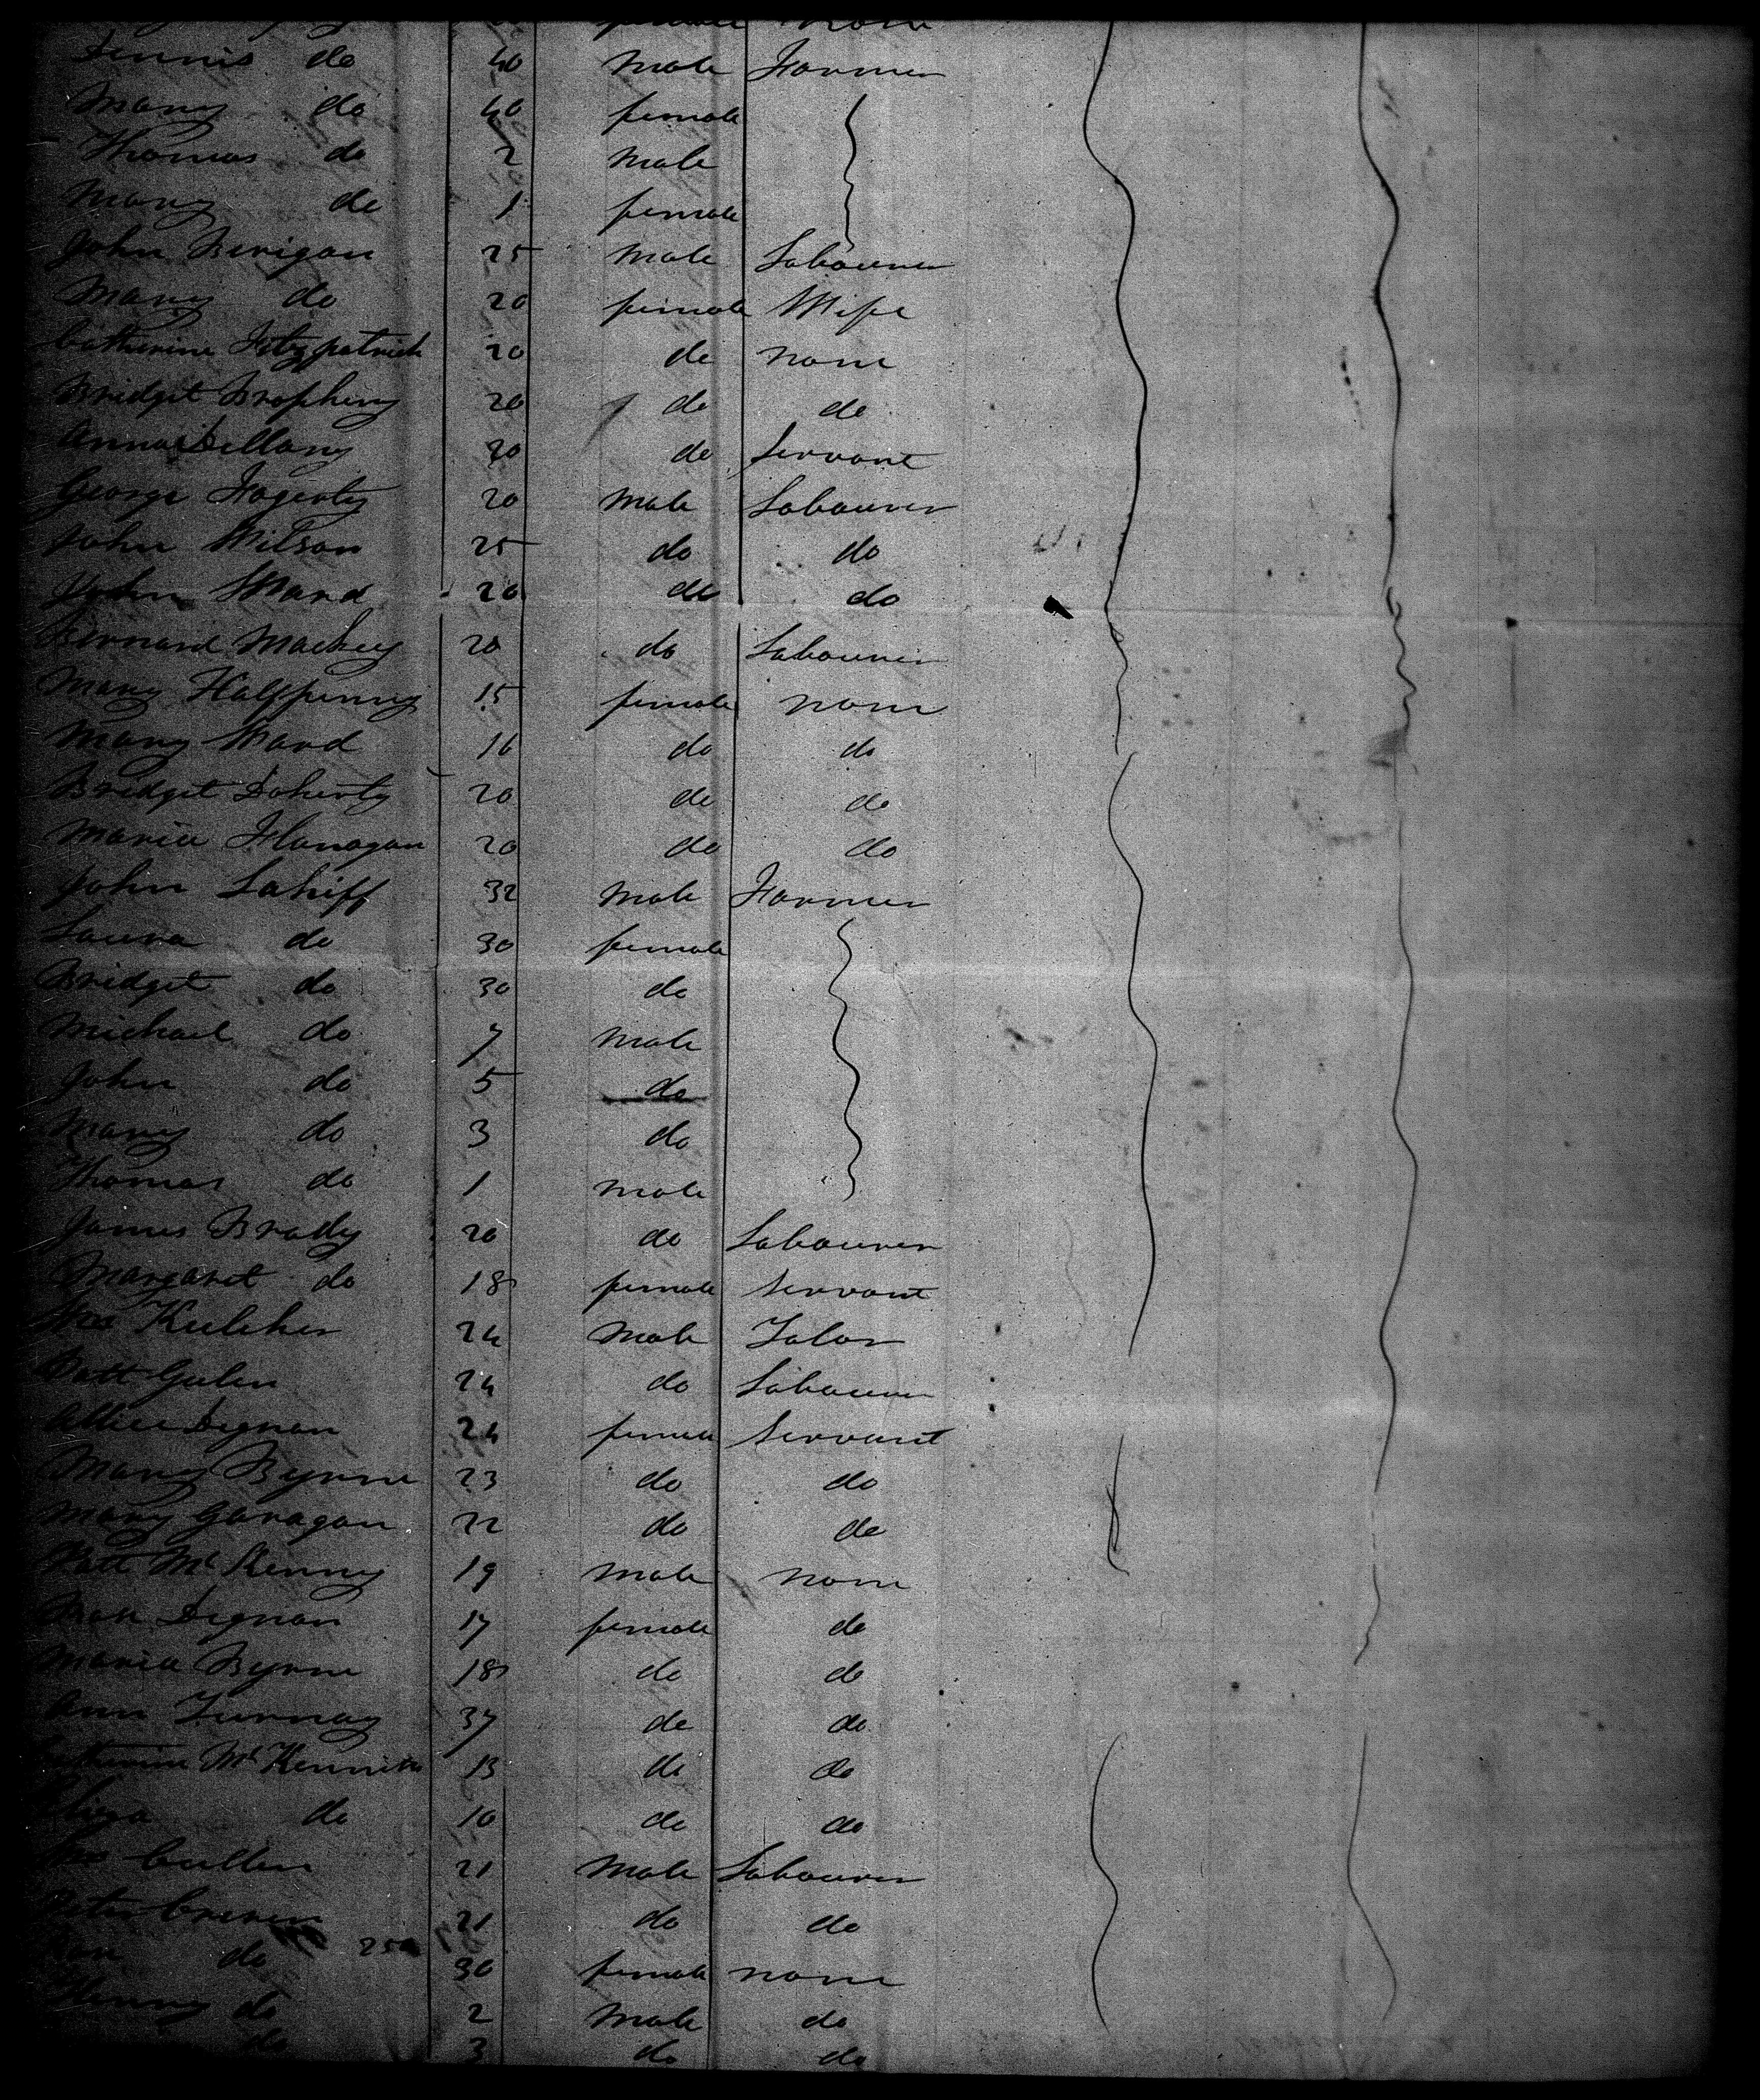 female none
Dennis do 40 Male Farmer
Mary do 40 female
Thomas do 2 Male
Mary do 1 female
John Berigan 25 Male Labourer
Mary do 20 female Wife
Catherine Fitzpatrick 20 do none
Bridget Bropheny 20 do do
Anna Dellany 20 do Servant
George Fogerty 20 Male Labourer
John Wilson 25 do do
John Ward 20 do do
Bernard Mackey 20 do Labourer
Mary Halfpenny 15 female none
Mary Ward 16 do do
Bridget Doherty 20 do do
Maria Flanagan 20 do do
John Lahiff 32 Male Farmer
Laura do 30 female
Bridget do 30 do
Michael do 7 Male
John do 5 do
Mary do 3 do
Thomas do 1 Male
James Brady 20 do Labourer
Margaret do 18 female Servant
Kulcher 24 Male Talor
Patt Gulen 24 do Labourer
Allice Dignan 24 female Servant
Mary Byrne 23 do do
Mary Garagan 22 do do
Patt McKenny 19 Male none
Dignan 17 female do
Maria Byrne 18 do do
Ann Turnay 37 do do
McKennith 13 do do
Eliza do 10 do do
Cullen 21 Male Labourer
Peter 21 do do
do 250 30 female none
Henry do 2 Male do
do 3 do do